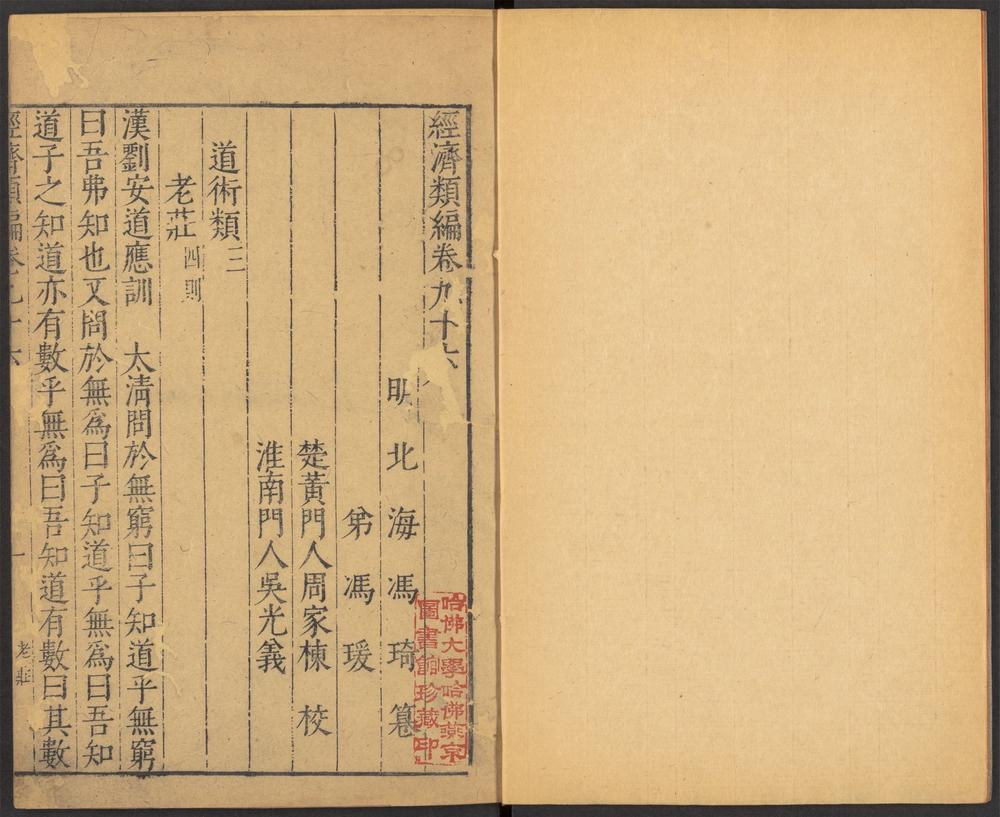 經濟類編卷九十六
明北海馮琦纂
弟馮瑗
楚黃門人周家棟校
淮南門人吳光義
道術類三
老莊四則
漢劉安道應訓　太清問於無窮曰子知道乎無窮
曰吾弗知也又問於無為曰子知道乎無為曰吾知
道子之知道亦有數乎無為曰吾知道有數曰其數
經濟類編卷九十六　一　老莊
哈佛大學哈佛燕京
圖書館珍藏印